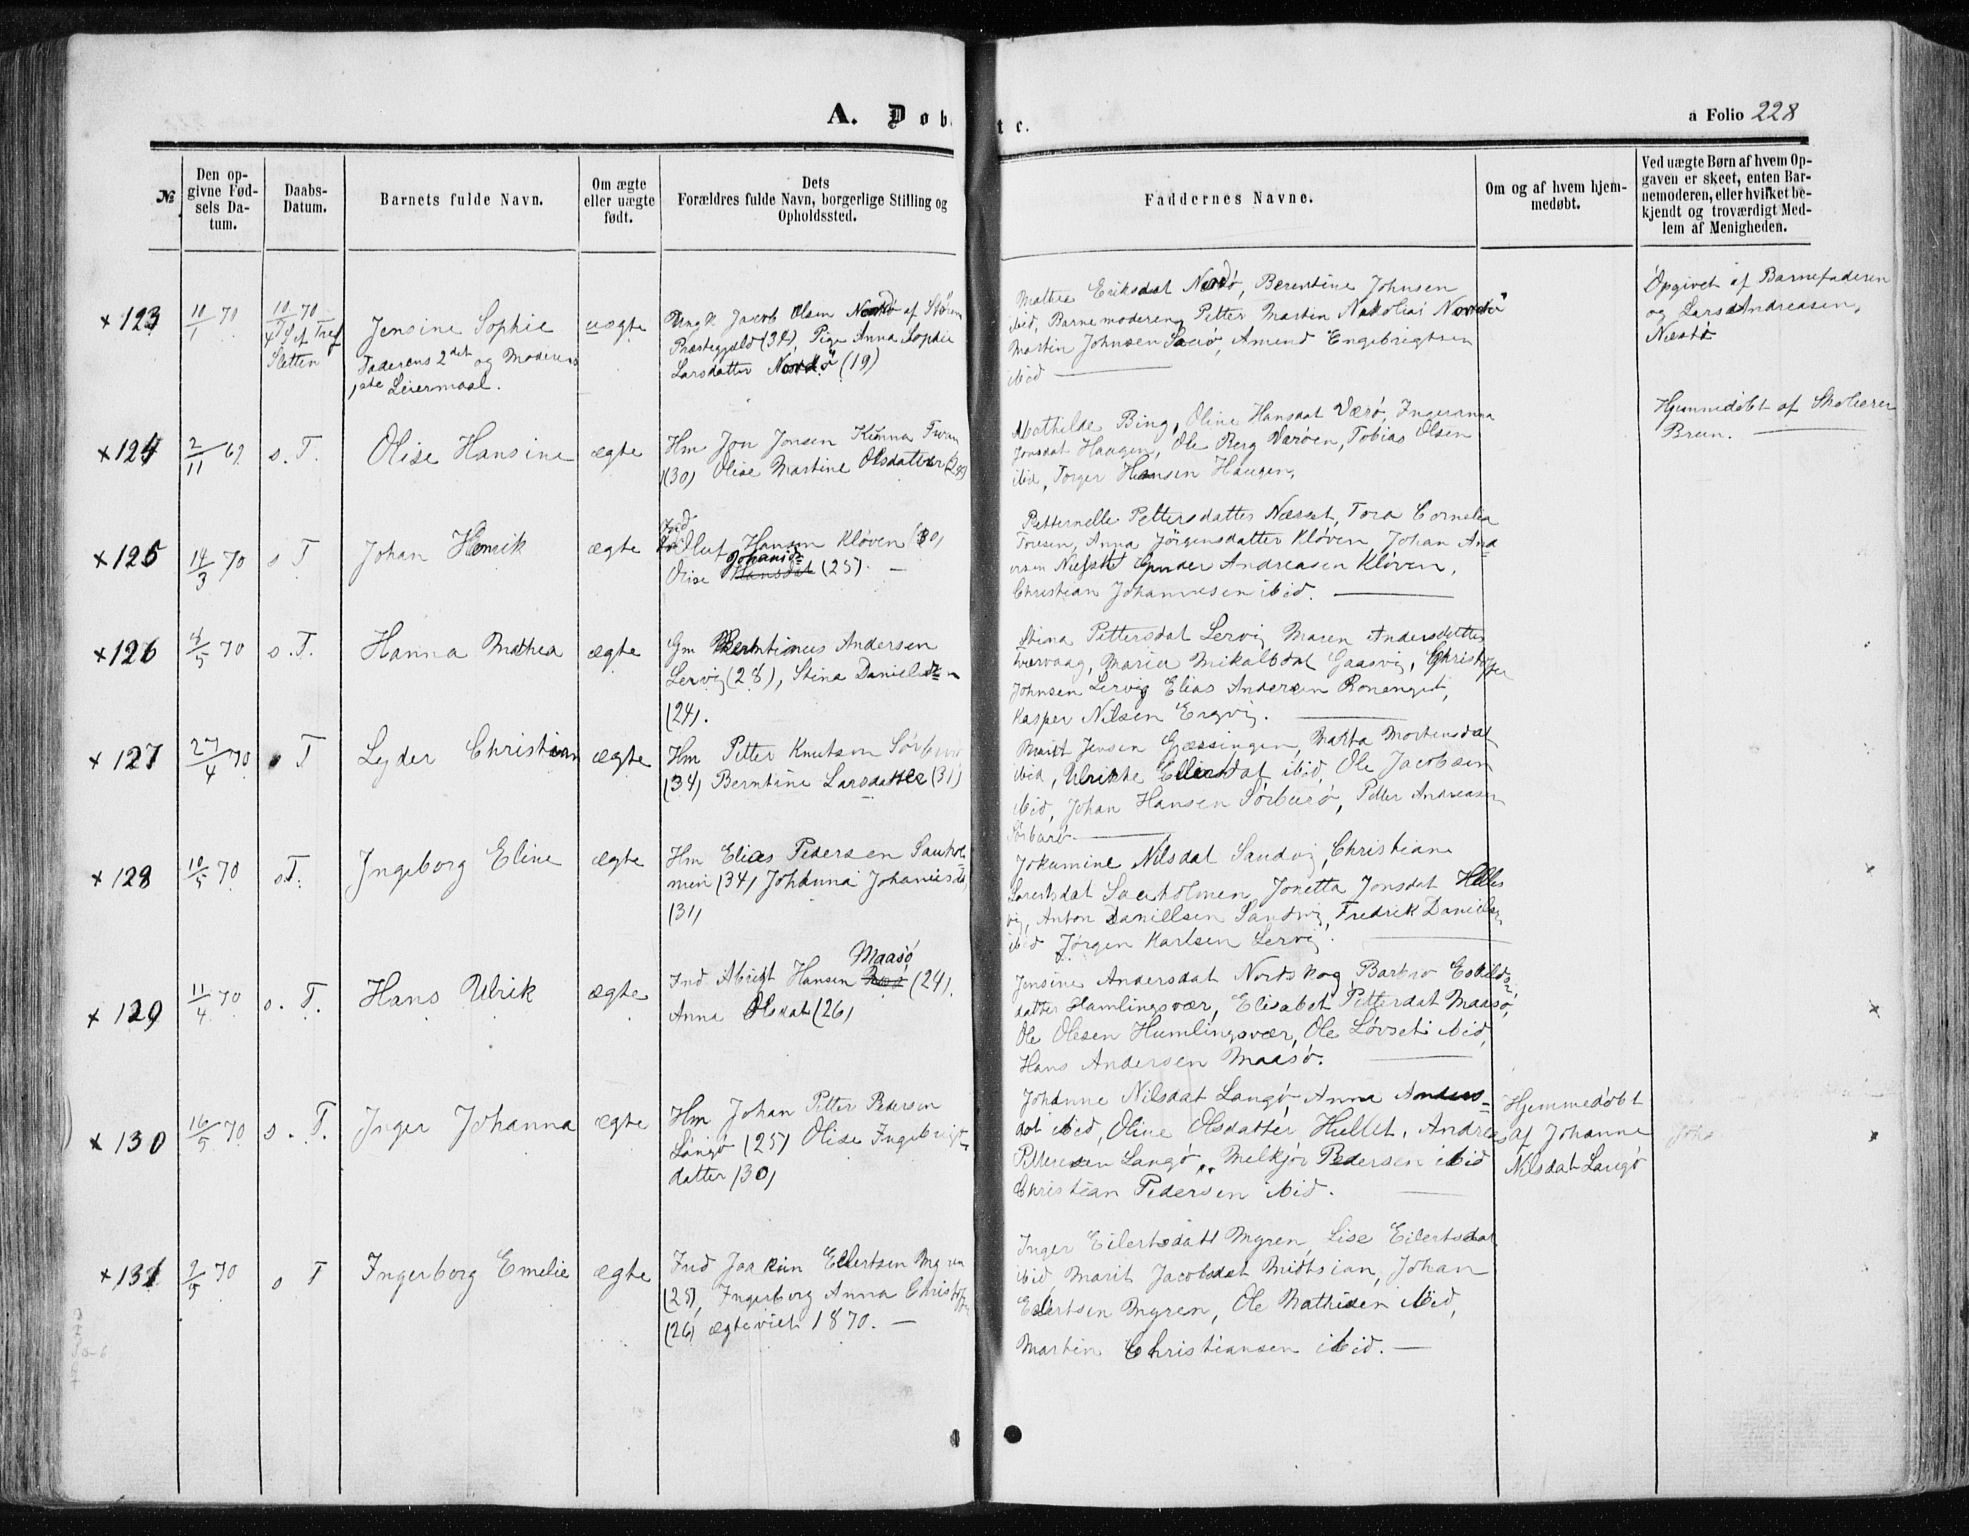 A. Døb
t c.
a Folio 228
№
Den opgivne Fødsels Datum.
Daabs-Datum.
Barnets fulde Navn.
Om ægte eller uægte født.
Dets Forældres fulde Navn, borgerlige Stilling og Opholdssted.
Faddernes Navne.
Om og af hvem hjemmedøbt.
Ved uægte Børn af hvem Opgaven er skeet, enten Barnemoderen, eller hvilket bekjendt og troværdigt Medlem af Menigheden.
× 123
10/1 70
10/7 70
Sletten
Jensine Sophie
Faderens 2det og Moderens
1ste Leiermaal.
uægte
Ungk Jacob Olsen af Støren
Præstegjæld (32), Pige Anna Sophie
Larsdatter (19)
Mathea Eriksdat Berentine Johnsen
ibid, Barnemoderen, Petter Martin
Martin Johnsen Amund Engebrigtsen
ibid
Opgivet af Barnefaderen
og Lars Andreasen,
× 124
2/11 69
s. T.
Olise Hansine
ægte
Hm Jon Jonsen Kunna
(30) Olise Martine Olsdatter (24)
Mathilde Bing, Oline Hansdat Værø, Ingeranna
Jonsdat Haugen, Ole Berg Værøen, Tobias Olsen
ibid, Torger Hansen Haugen,
Hjemmedøbt af Skolærer
Brun.
× 125
14/3 70
s T
Johan Henrik
ægte
Ind
Oluf Hansen Kløven (30)
Johanisd
Olise Hansdat (25). —
Petternelle Pettersdatter Næsset, Tora Cornelia
Toresen, Anna Jørgensdatter Kløven, Johan And
ersen Gunder Andreasen Kløven,
Christian Johannesen ibid.
× 126
4/5 70
s. T.
Hanna Mathea
ægte
Gm Berntinus Andersen
Lervig (28), Stina Danielsd
(24).
Stina Pettersdat Lervig Maren Andersdatter
Kværvaag, Maria Mikalsdat Gaasvig, Christoffer
Johnsen Lervig Elias Andersen
Kasper Nilsen
× 127
27/4 70
s T
Lyder Christian
ægte
Hm Petter Knutsen Sørburø
(34) Berntine Larsdatter (31)
Marit Jensen Gjæssingen, Marta Mortensdat
ibid, Ulrikke Ellensdat ibid, Ole Jacobsen
ibid, Johan Hansen Sørburø, Petter Andreasen
Sørburø.
× 128
10/5 70
s. T.
Ingeborg Eline
ægte
Hm Elias Pedersen Sauhol
men (34) Johanna Johanisd
(31)
Jokumine Nilsdat Sandvig, Christiane
Larentsdat Sauholmen, Jonetta Jonsdat Helles
vig, Anton Daniellsen Sandvig, Fredrik Danielsen
ibid Jørgen Karlsen Lervig.
× 129
11/4 70
s. T.
Hans Ulrik
ægte
Maasø
Ind Albrigt Hansen (24).
Anna Olsdat (26)
Jensine Andersdat Nordskog, Barbro Eskilds
datter Hamlingsvær, Elisabet Petterdat Maasø,
Ole Olesen Humlingsvær, Ole Løvset ibid,
Hans Andersen Maasø.
× 130
16/5 70
s. T.
Inger Johanna
ægte
Hm Johan Petter Pedersen
Langø (25) Olise Ingebrigt
datter (30)
Johanne Nilsdat Langø Anna Anders
dat ibid, Oline Olsdatter Hullet, Andreas
Petersen Langø, Melkjor Pedersen ibid
Christian Pedersen ibid.
Hjemmedøbt
af Johanne
Nilsdat Langø
× 131
9/5 70
s T
Ingerborg Emelie
ægte
Ind Joakim Eilertsen Myren
(25), Ingerborg Anna Christoff
(26) ægteviet 1870. —
Inger Eilertsdatt Myren, Lise Eilertsdat
ibid, Marit Jacobsdat Midtsian, Johan
Eilertsen Myren, Ole Mathisen ibid,
Martin Christiansen ibid. —